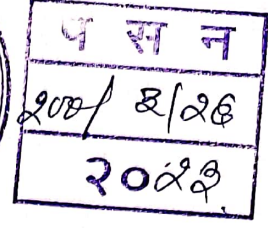 प स न
२००/ ३/२६
२०२३